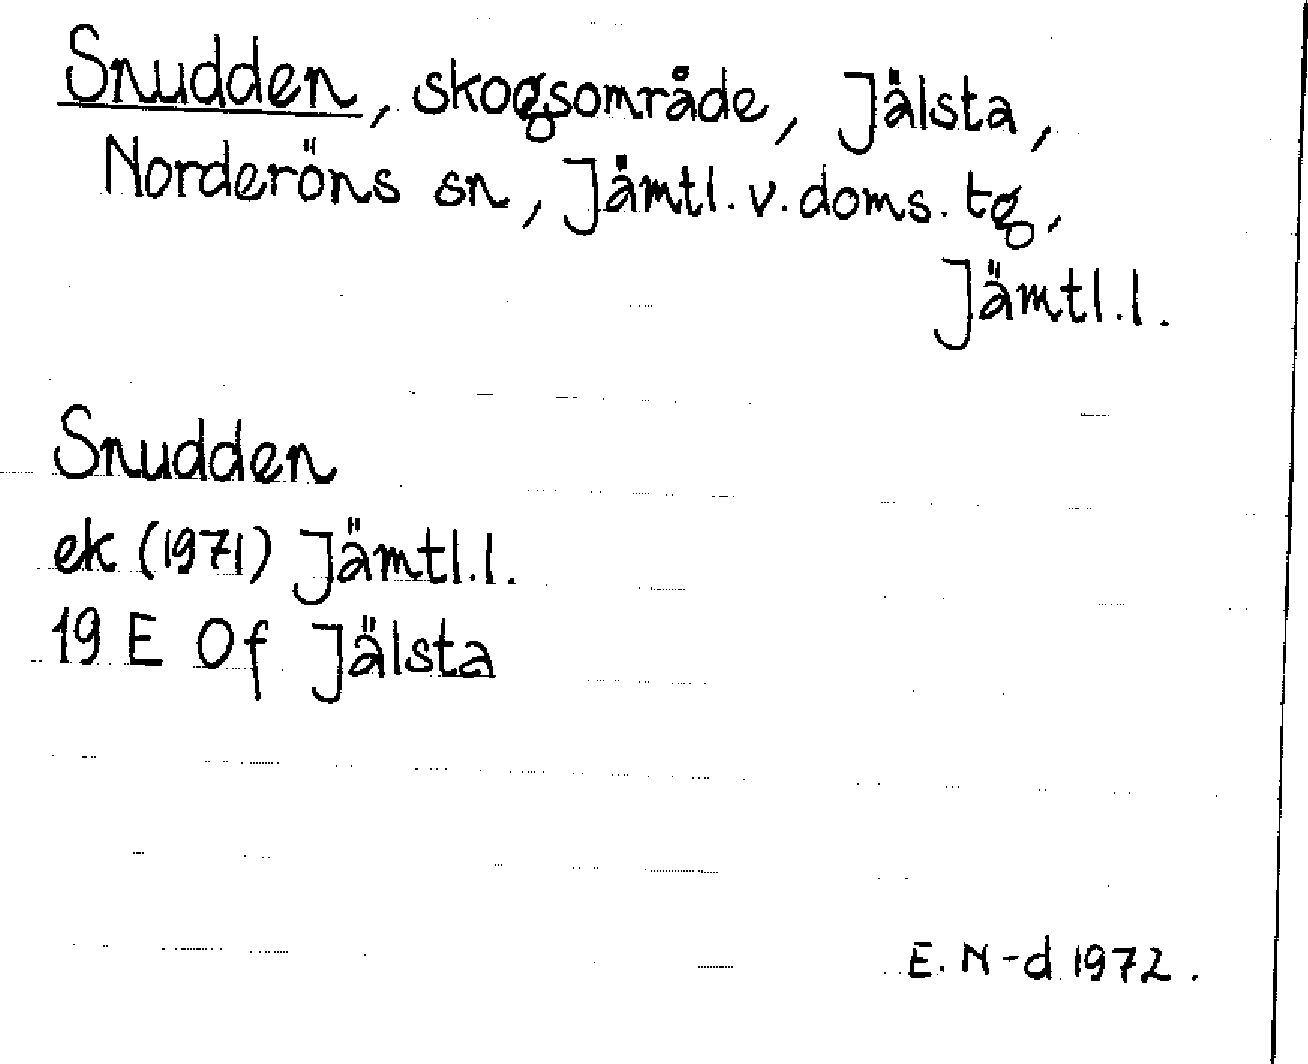 Snudden, skogsområde, Jälsta,
Norderöns sn, Jämtl. v. doms. tg,
Jämtl. l.
Snudden
ek (1971) Jämtl. l.
19 E 0f Jälsta
E. N-d 1972.